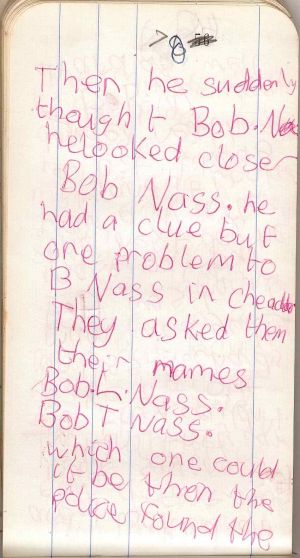 78
Then he suddenly
thought Bob. Nass
helooked close
Bob Nass. he
had a clue but
one problem to
B Nass in
They asked them
their mames
Bob.L.Nass.
Bob T Nass.
which one could
it be then the
police found the